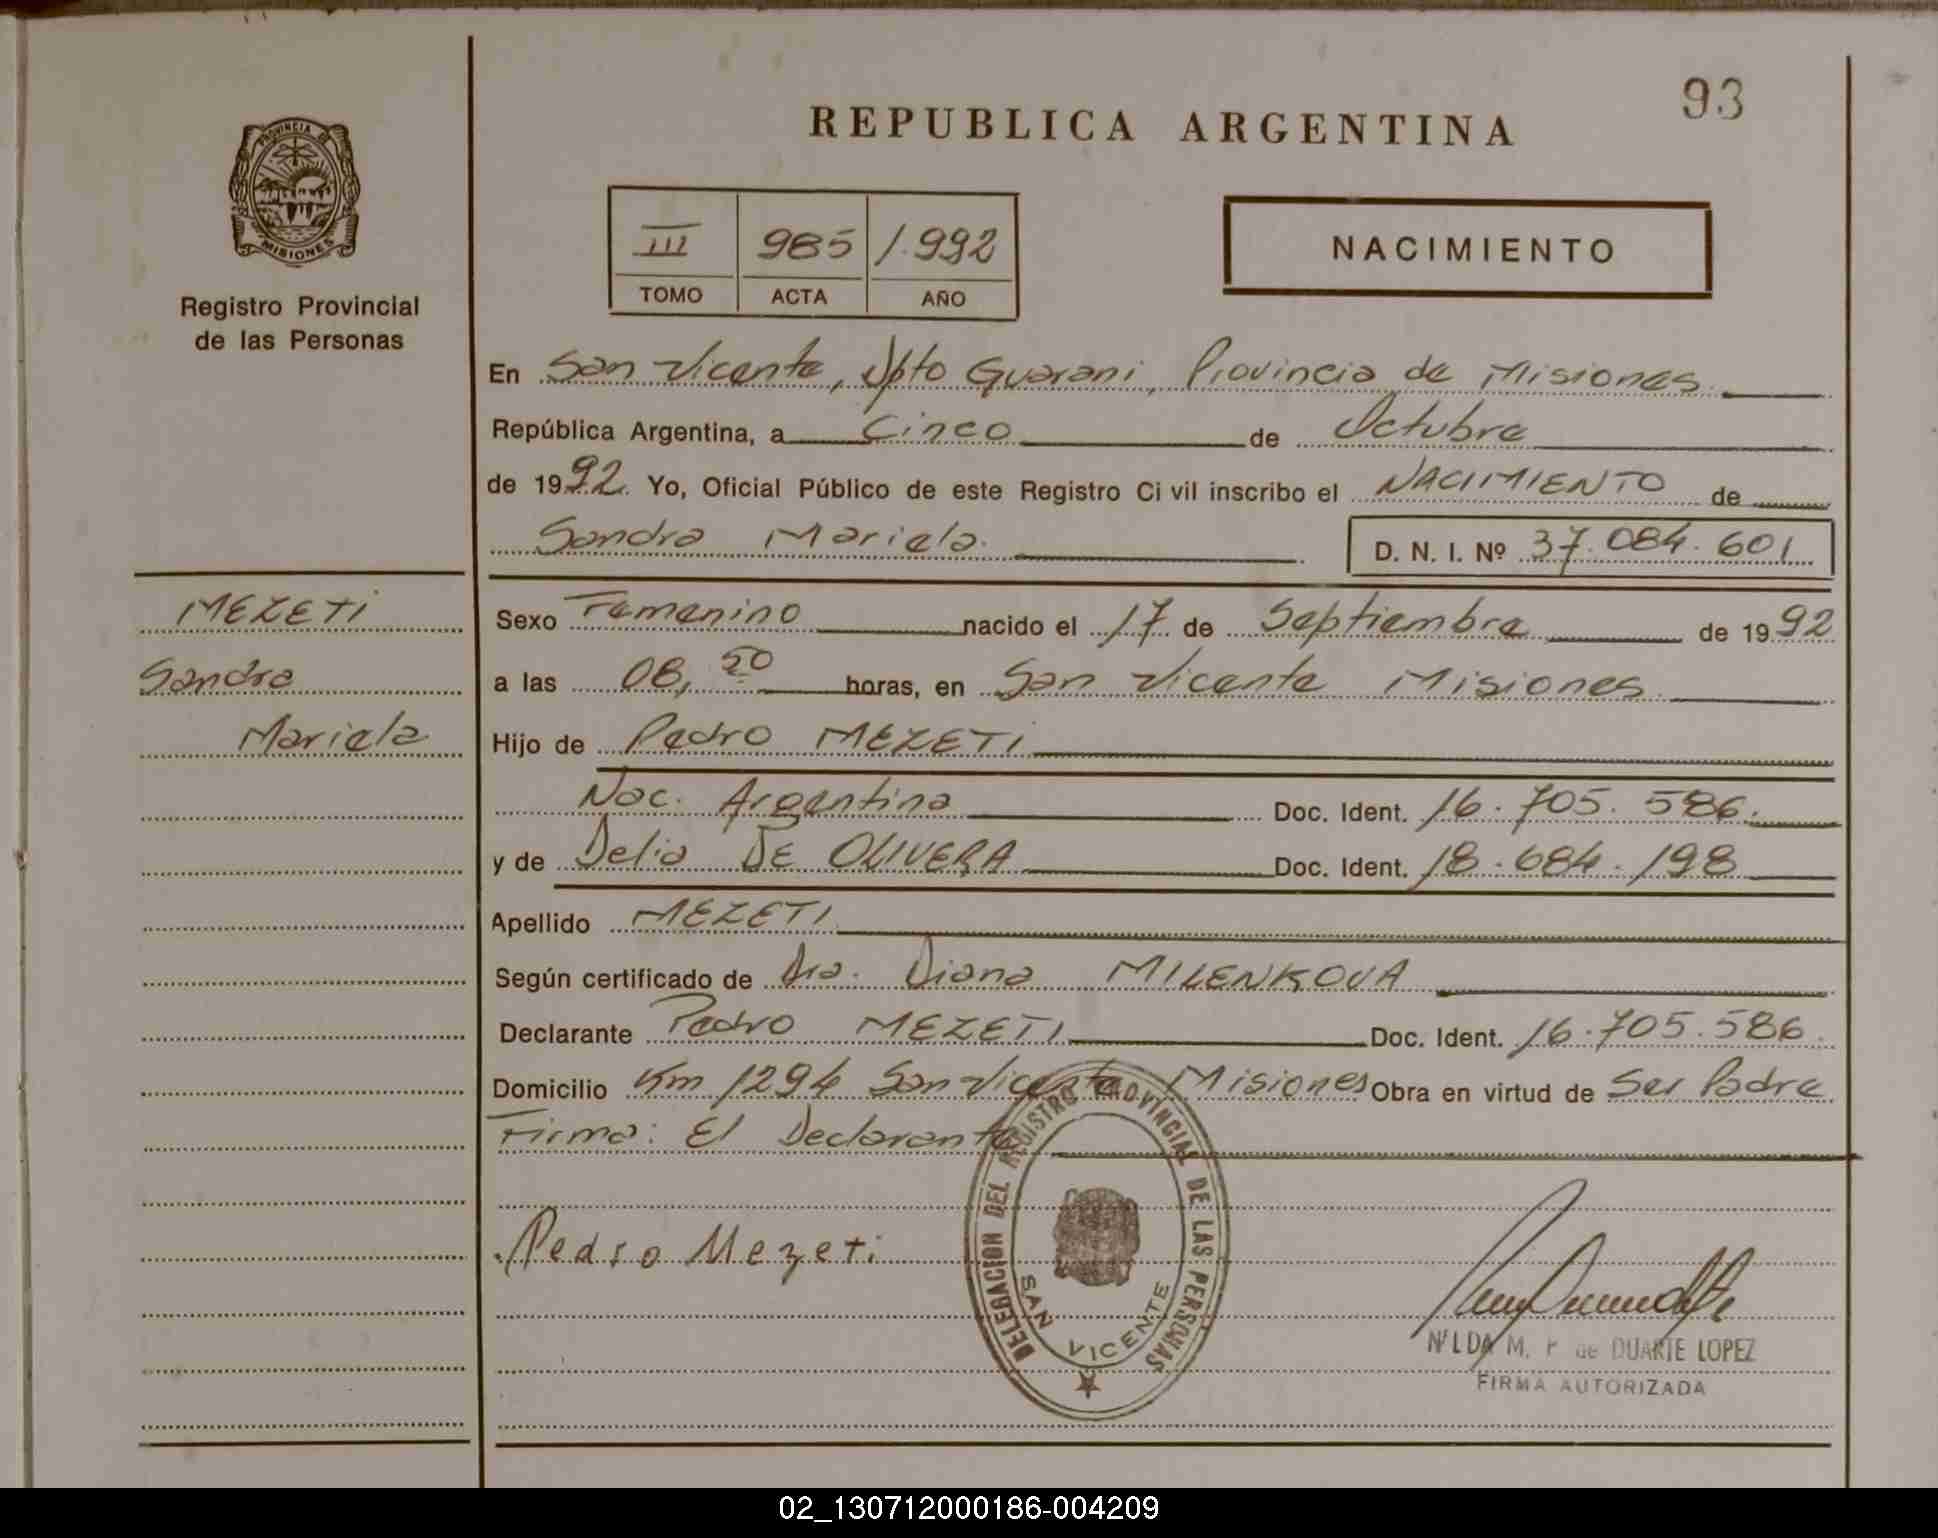 93
REPUBLICA ARGENTINA
PROVINCIA DE
MISIONES
Registro Provincial
de las Personas
III 985 1.992
TOMO ACTA AÑO
NACIMIENTO
En San Vicente, Dpto Guarani, Provincia de Misiones
República Argentina, a Cinco de Octubre
de 1992 Yo, Oficial Público de este Registro Ci vil inscribo el NACIMIENTO de
Sandra Mariela. D. N. I. Nº 37.084.601
MEZETI
Sandra
Mariela
Sexo Femenino nacido el 17 de Septiembre de 1992
a las 08,50 horas, en San Vicente Misiones
Hijo de Pedro MEZETI
Nac. Argentina Doc. Ident. 16.705.586.
y de Delia DE OLIVERA Doc. Ident. 18.684.198
Apellido MEZETI
Según certificado de Dra. Diana MILENKOVA
Declarante Pedro MEZETI Doc. Ident. 16.705.586.
Domicilio Km 1294 San Vicente Misiones Obra en virtud de Ser Padre
Firma: El Declarante
Pedro Mezeti
DELEGACION DEL REGISTRO PROVINCIAL DE LAS PERSONAS
SAN VICENTE
NILDA M. de DUARTE LOPEZ
FIRMA AUTORIZADA
02_130712000186-004209